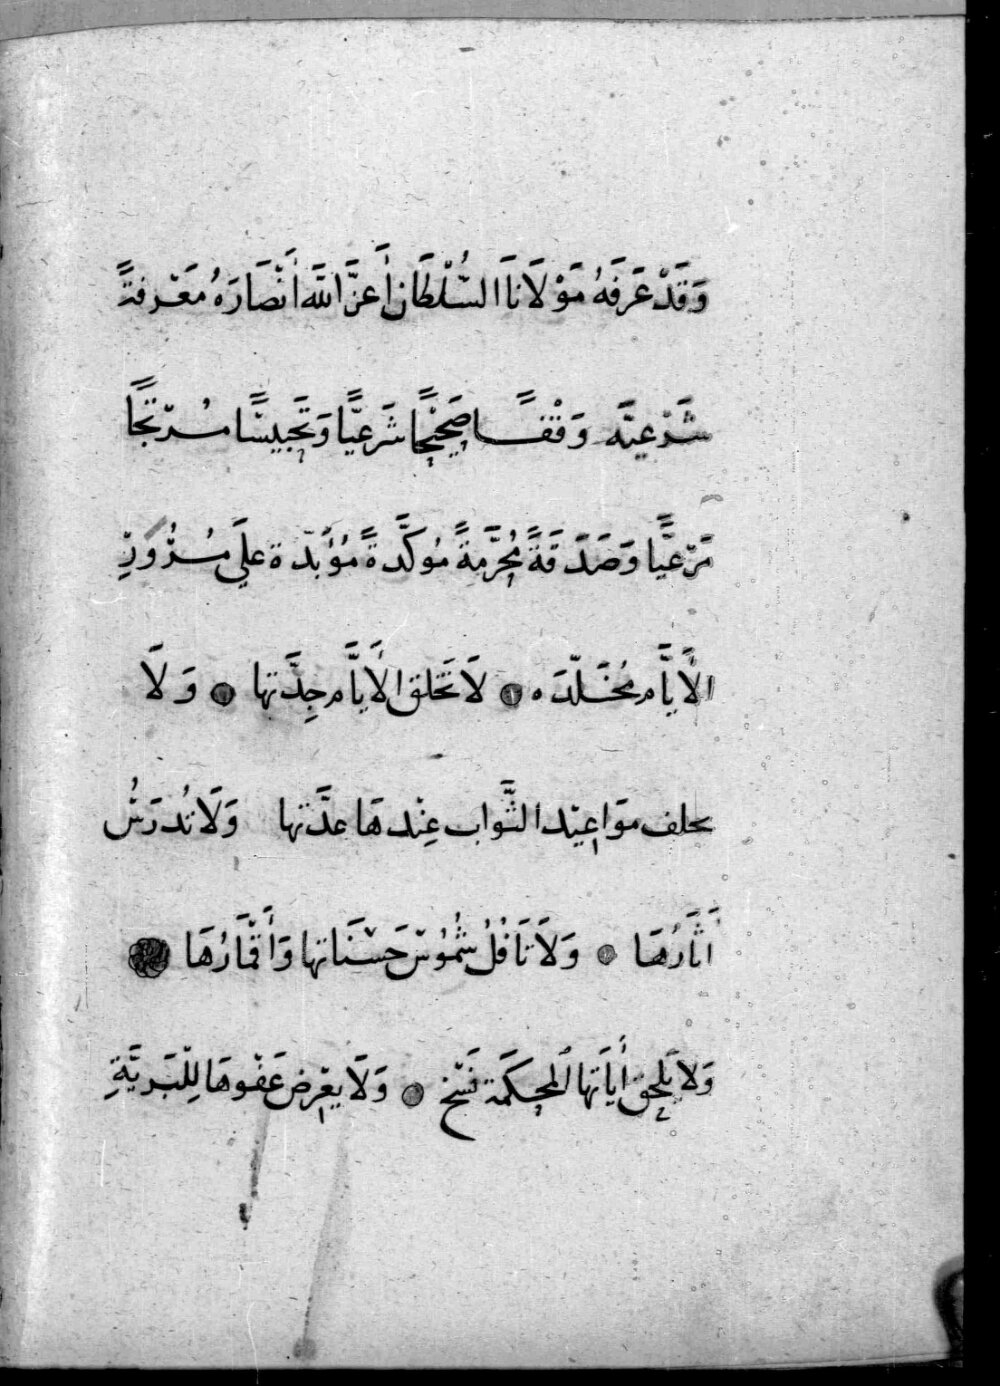 وَقَدْ عَرَفَهُ مَوْلَانَا السُّلْطَان أَعَزَّ اللَّه أَنْصَارَهُ مَعْرفةً
شَرْعيَّه وَقْفًا صَحِيْحًا شَرعيًّا وَتَحبيسًا مُسرّجًّا
مَرْعيًّا وَصَدَقَةً مُحرَّمةً مُوكَّدةً مُؤبّدَة علَى مُرُوْرِ
الأيَّام مُخَلّدَه لَا تَخلق الأيَّام جِدَّتها وَلَا
يخلف موَاعِيْد الثَّواب عِنْدهَا عدَّتها وَلَا تُدرَسُ
اَثَارُهَا وَلَا تَافُلُ شُمُوْسُ حَسَنَاتها وَأَقْمَارُهَا
وَلا يلحق أيَاتَها المحكَمَة نَسْخ وَلَا يعْرِض عَفْوهَا لِلْبَريَّةِ